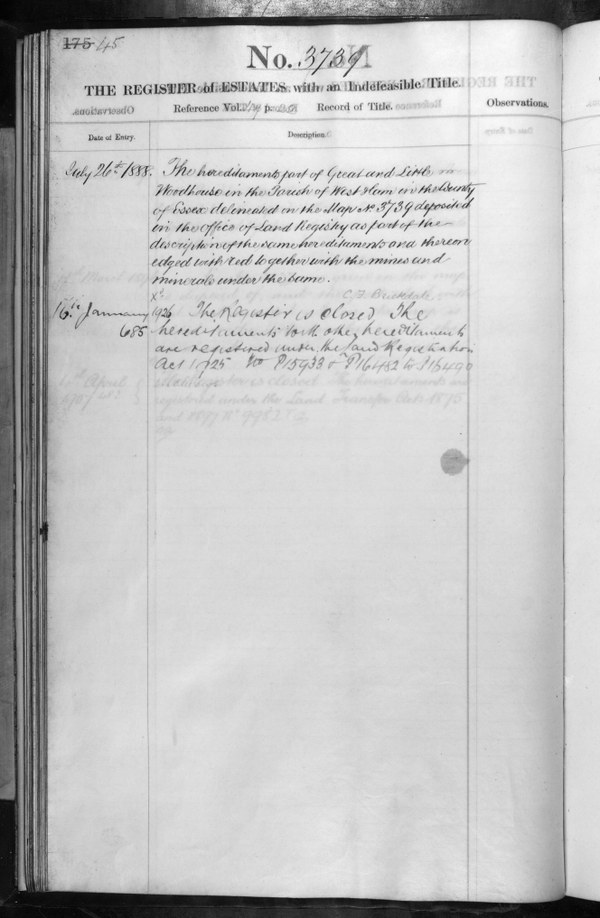 175 45
No. 3739
THE REGISTER of ESTATES with an Indefeasible Title.
Reference Vol. p. Record of Title.
Observations.
Date of Entry.
Description.
July 26th 1888. The hereditaments part of Great and Little
Woodhouse in the Parish of West Ham in the County
of Essex delineated on the Map No 3739 deposited
in the office of Land Registry as part of the
description of the same hereditaments and thereon
edged with red together with the mines and
minerals under the same.
C. F. Brickdale
16th January 1926 The Register is closed. The
685 hereditaments with other hereditaments
are registered under the Land Registration
Act 1925 P15933 P16482 to P16490